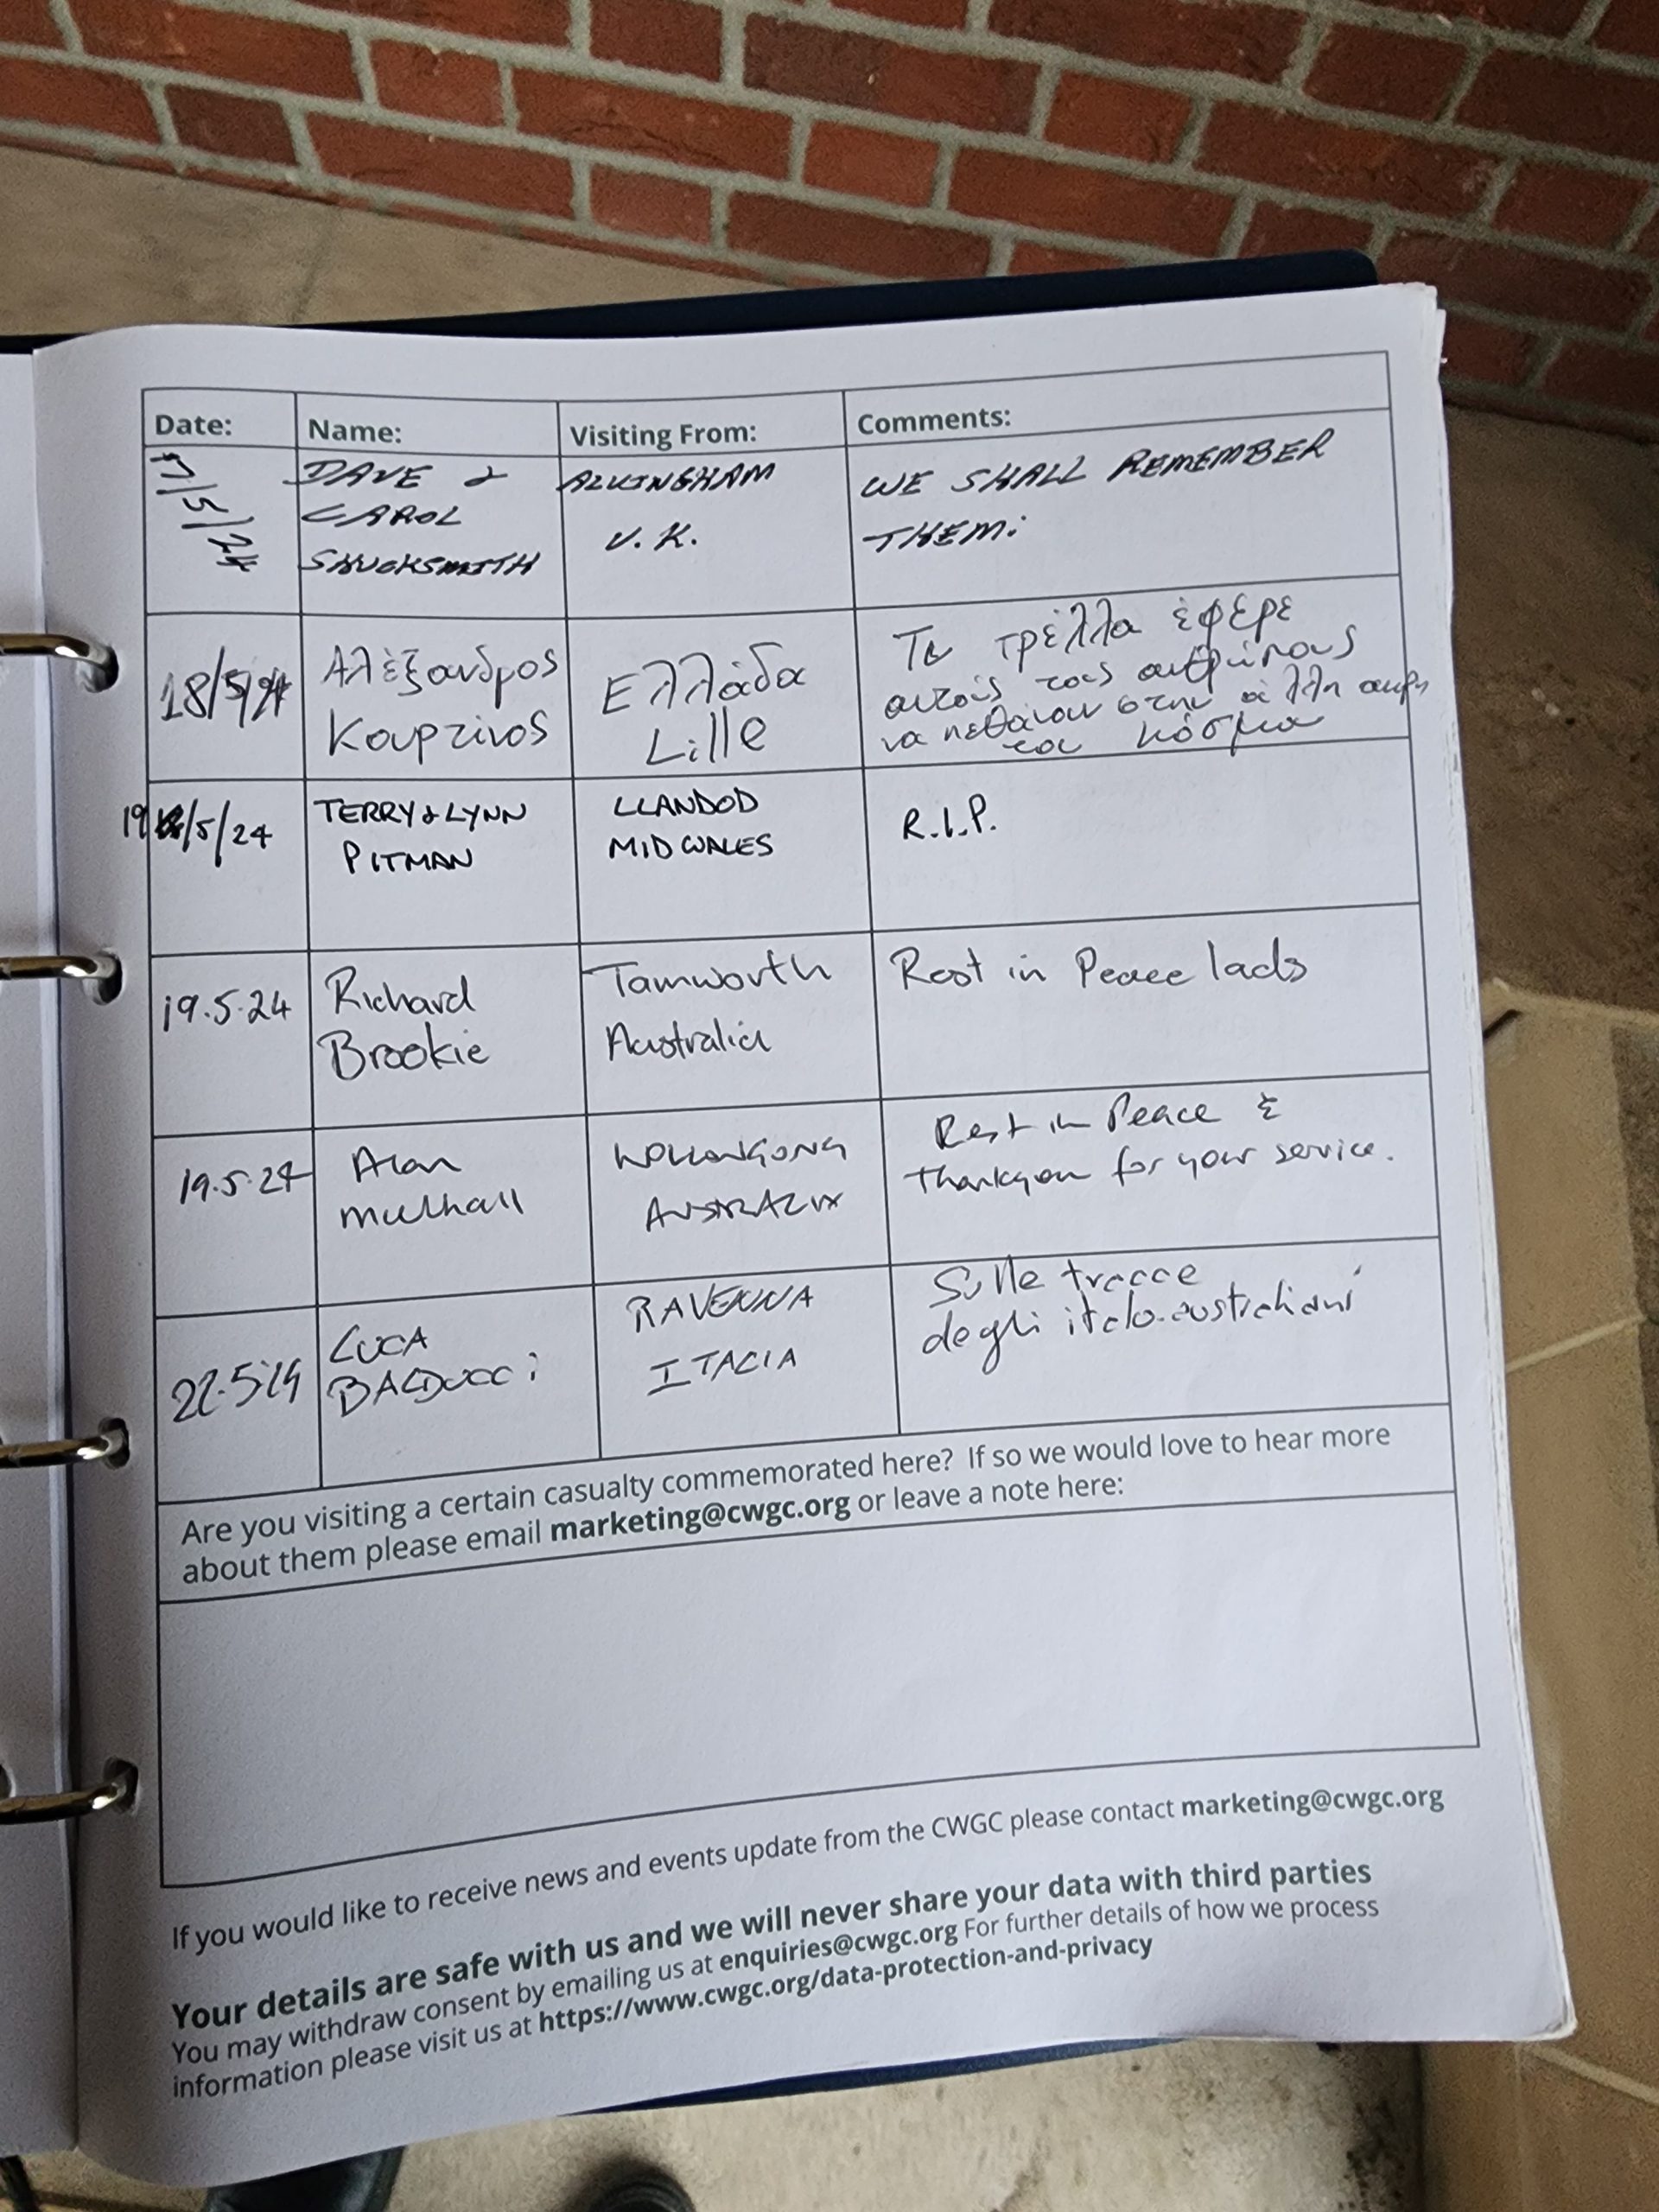 Date: Name: Visiting From: Comments:
DAVE & ALVINGHAM WE SHALL REMEMBER
CAROL U.K. THEM.
SHUCKSMITH
18/5/24 Αλέξανδρος Ελλάδα Τι τρέλλα έφερε
Κουρτίνος Lille αυτούς τους ανθρώπους
να πεθάνουν στην άλλη άκρη
του κόσμου
19/5/24 TERRY & LYNN LLANDOD R.I.P.
PITMAN MID WALES
19.5.24 Richard Tamworth Rest in Peace lads
Brookie Australia
19.5.24 Alan WOLLONGONG Rest in Peace &
Mulhall AUSTRALIA Thankyou for your service.
22.5.24 LUCA RAVENNA Sulle tracce
BALDUCCI ITALIA degli italo-australiani
Are you visiting a certain casualty commemorated here? If so we would love to hear more
about them please email marketing@cwgc.org or leave a note here:
If you would like to receive news and events update from the CWGC please contact marketing@cwgc.org
Your details are safe with us and we will never share your data with third parties
You may withdraw consent by emailing us at enquiries@cwgc.org For further details of how we process
information please visit us at https://www.cwgc.org/data-protection-and-privacy